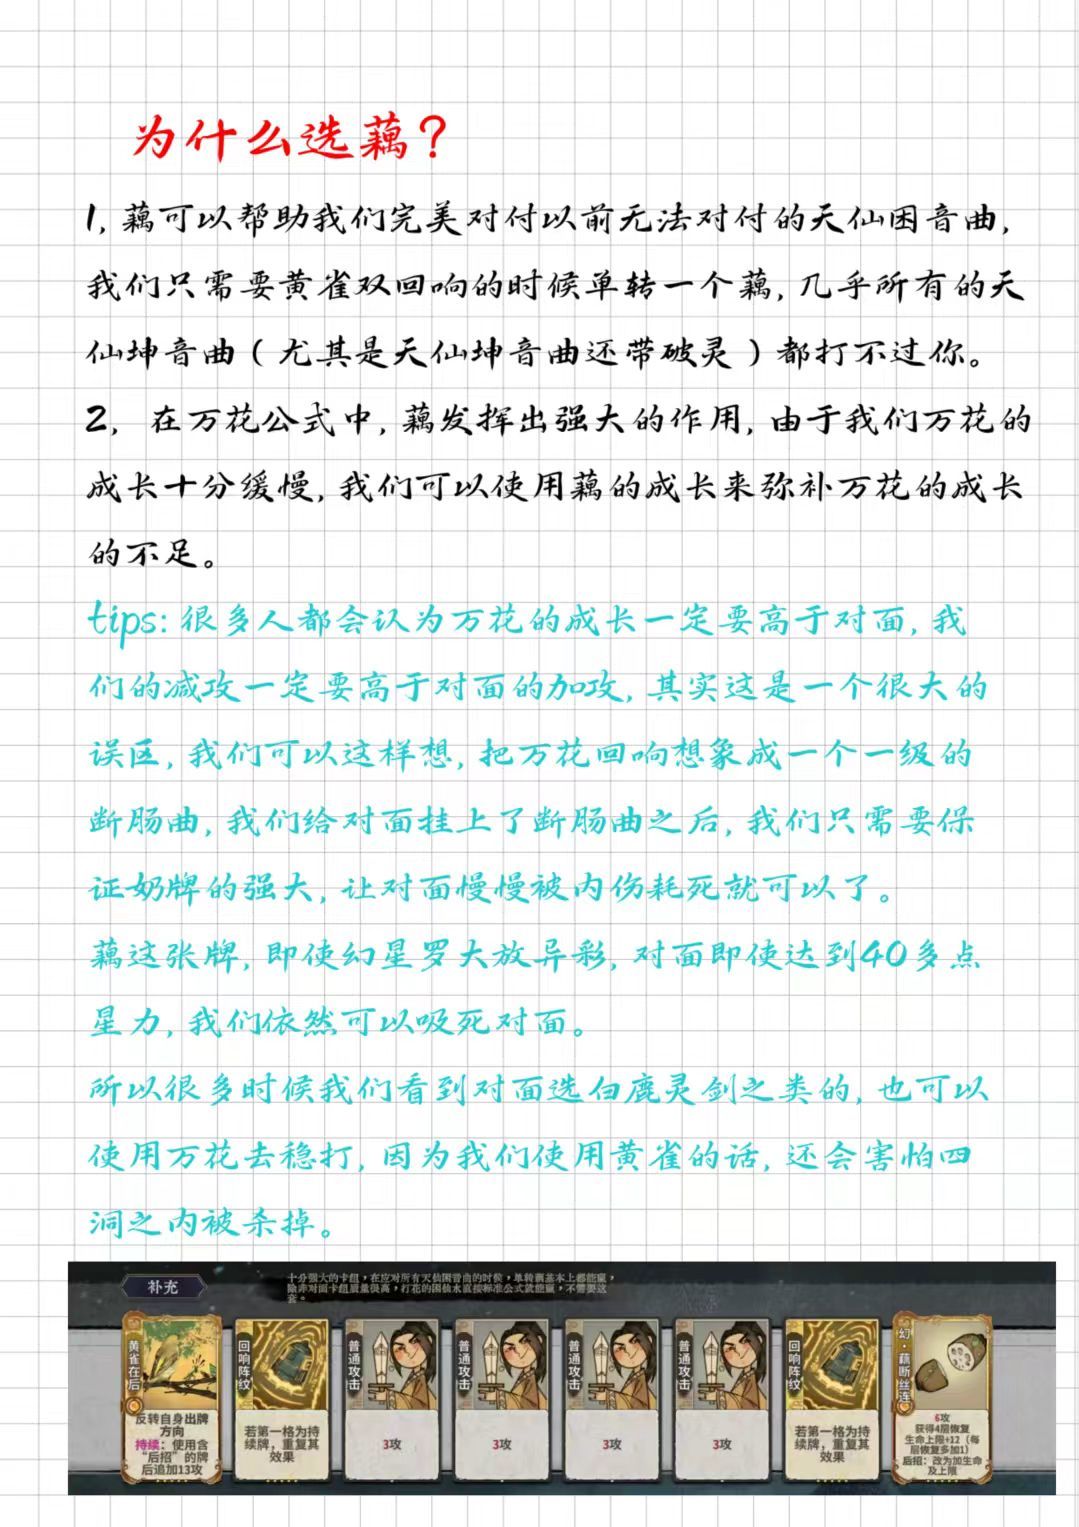 为什么选藕？
1，藕可以帮助我们完美对付以前无法对付的天仙困音曲，
我们只需要黄雀双回响的时候单转一个藕，几乎所有的天
仙坤音曲（尤其是天仙坤音曲还带破灵）都打不过你。
2， 在万花公式中，藕发挥出强大的作用，由于我们万花的
成长十分缓慢，我们可以使用藕的成长来弥补万花的成长
的不足。
tips：很多人都会认为万花的成长一定要高于对面，我
们的减攻一定要高于对面的加攻，其实这是一个很大的
误区，我们可以这样想，把万花回响想象成一个一级的
断肠曲，我们给对面挂上了断肠曲之后，我们只需要保
证奶牌的强大，让对面慢慢被内伤耗死就可以了。
藕这张牌，即使幻星罗大放异彩，对面即使达到40多点
星力，我们依然可以吸死对面。
所以很多时候我们看到对面选白鹿灵剑之类的，也可以
使用万花去稳打，因为我们使用黄雀的话，还会害怕四
洞之内被杀掉。
补充
十分强大的卡组，在应对所有天仙困音曲的时候，单转藕基本上都能赢，
除非对面卡组质量很高，打花的困仙水直接标准公式就能赢，不需要这
套。
黄雀在后
反转自身出牌
方向
持续：使用含
“后招”的牌
后追加13攻
回响阵纹
若第一格为持
续牌，重复其
效果
普通攻击
3攻
普通攻击
3攻
普通攻击
3攻
普通攻击
3攻
回响阵纹
若第一格为持
续牌，重复其
效果
幻·藕断丝连
6攻
获得4层恢复
生命上限+12（每
层恢复多加1）
后招：改为加生命
及上限